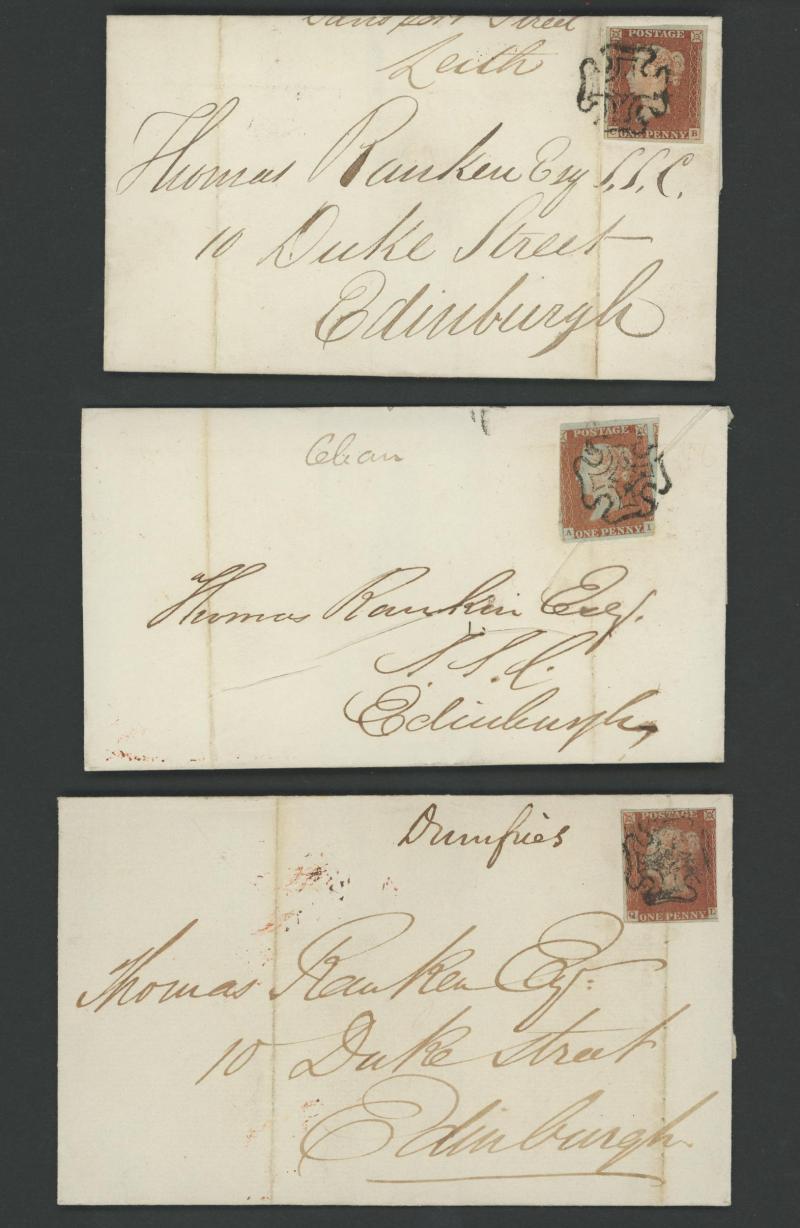 Street
Leith
POSTAGE
ONE PENNY B
Thomas Ranken Esq S.S.C.
10 Duke Street
Edinburgh
POSTAGE
A ONE PENNY I
Thomas Rankin Esq.
S.S.C.
Edinburgh
Dumfries
POSTAGE
ONE PENNY
Thomas Ranken Esqr
10 Duke Street
Edinburgh